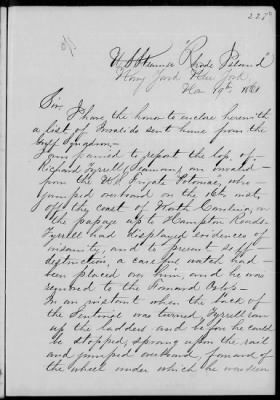 228
U.S. Steamer "Rhode Island"
Navy Yard New York
19th, 1861
Sir
I have the honor to enclose herewith
a list of Invalids sent home from the
Gulf Squadron—
I am pained to report the loss of
Richard Tyrrell (Seaman) an invalid
from the U.S. Frigate Potomac, who
jumped overboard on the 16th inst
off the coast of North Carolina, on
the passage up to Hampton Roads.
Tyrrell had displayed evidences of
insanity, and to prevent self
destruction, a careful watch had
been placed over him, and he was
removed to the Forward
In an instant when the back of
the Sentinel was turned, Tyrrell ran
up the ladders and before he could
be stopped, sprang upon the rail
and jumped overboard, forward of
the wheel under which he was seen